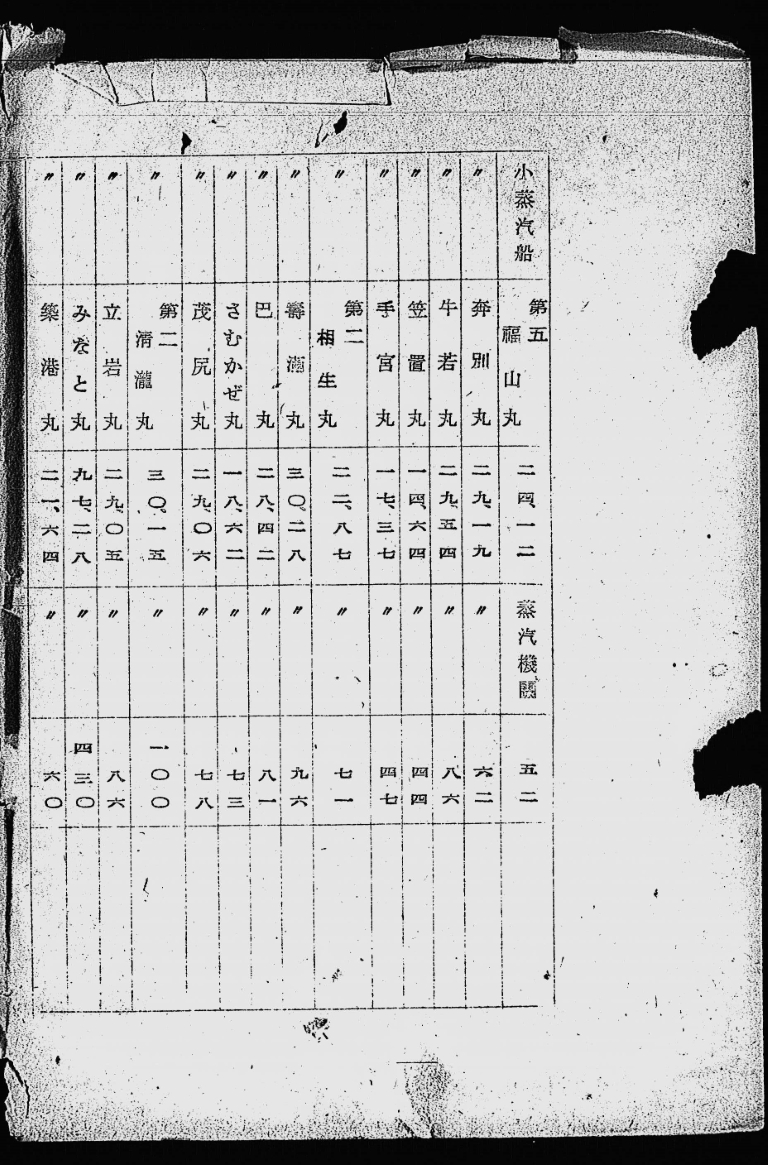 小蒸汽船 第五福山丸 二四、一二 蒸汽機關 五二
〃 奔別丸 二九、一九 〃 六二
〃 牛若丸 二九、五四 〃 八六
〃 笠置丸 一四、六四 〃 四四
〃 手宮丸 一七、三七 〃 四七
〃 第二相生丸 二二、八七 〃 七一
〃 壽浦丸 三〇、二八 〃 九六
〃 巴丸 二八、四二 〃 八一
〃 さむかぜ丸 一八、六二 〃 七三
〃 茂尻丸 二九、〇六 〃 七八
〃 第二清瀧丸 三〇、一五 〃 一〇〇
〃 立岩丸 二九、〇五 〃 八六
〃 みなと丸 九七、二八 〃 四三〇
〃 築港丸 二一、六四 〃 六〇